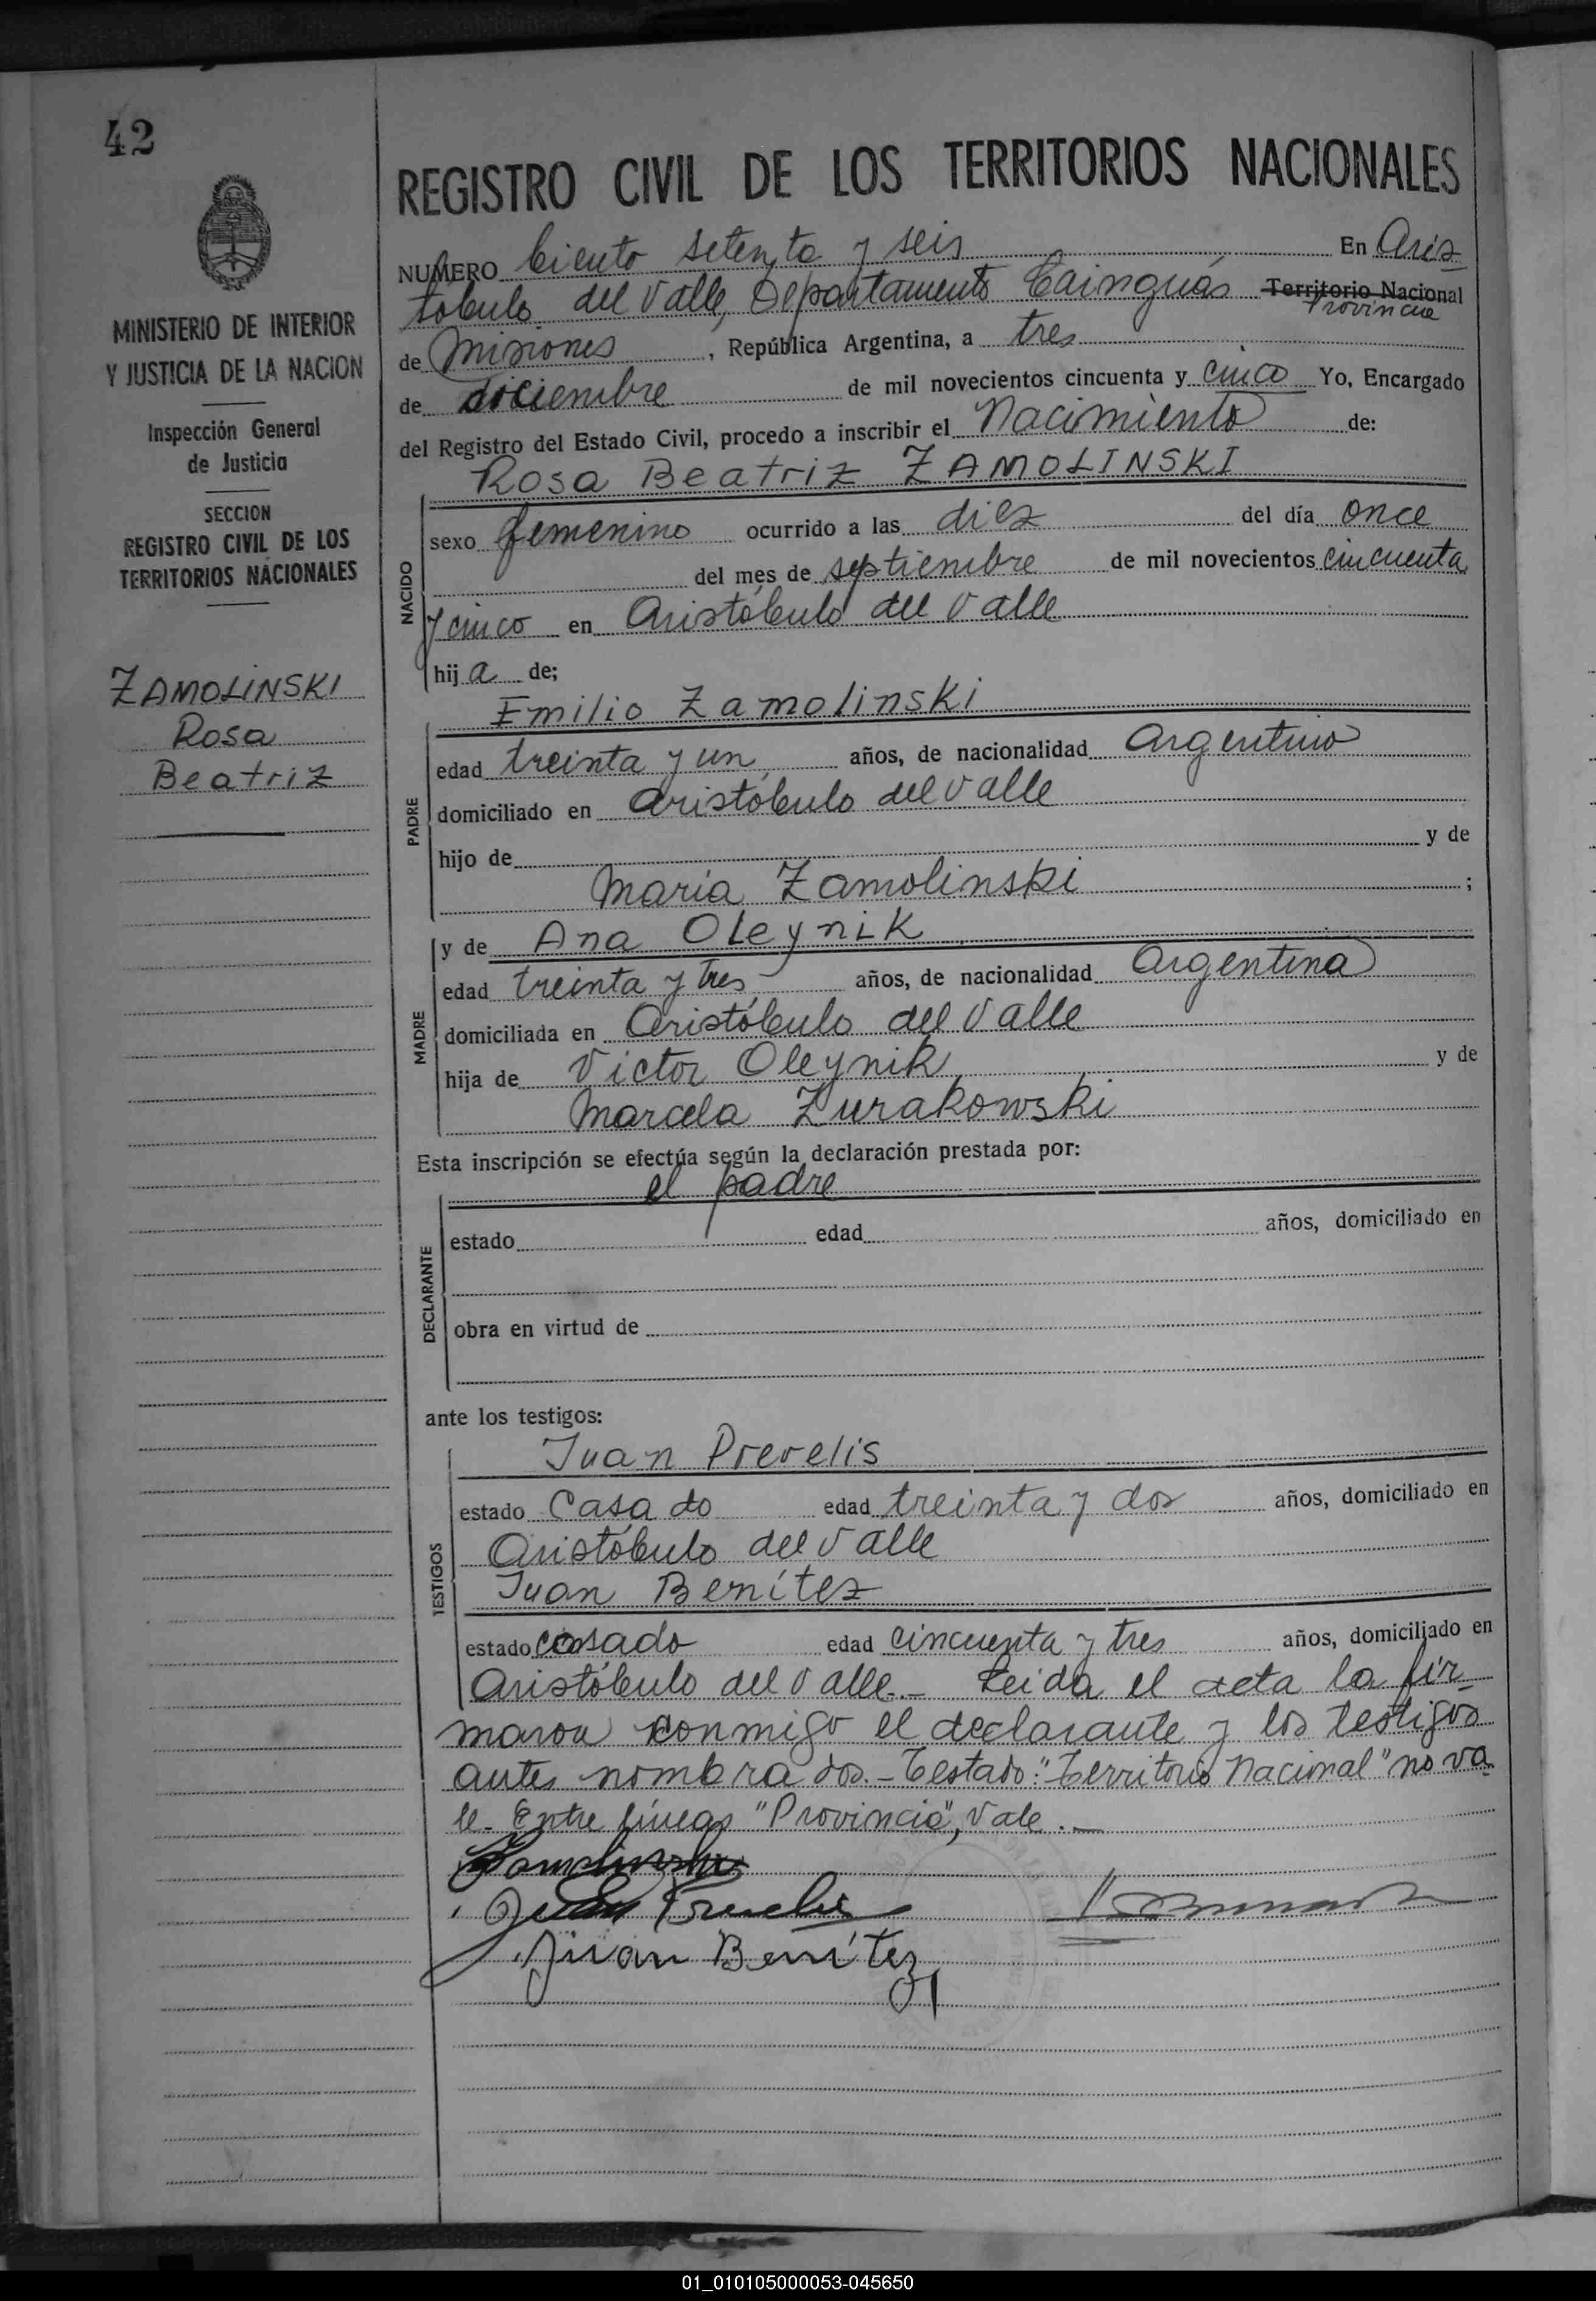 42
MINISTERIO DE INTERIOR
Y JUSTICIA DE LA NACION
Inspección General
de Justicia
SECCION
REGISTRO CIVIL DE LOS
TERRITORIOS NACIONALES
ZAMOLINSKI
Rosa
Beatriz
REGISTRO CIVIL DE LOS TERRITORIOS NACIONALES
NUMERO Ciento setenta y seis En Aris
tóbulo del Valle, Departamento Cainguás Territorio Nacional
Provincia
de Misiones, República Argentina, a tres
de diciembre de mil novecientos cincuenta y cinco Yo, Encargado
del Registro del Estado Civil, procedo a inscribir el Nacimiento de:
Rosa Beatriz ZAMOLINSKI
NACIDO
sexo femenino ocurrido a las diez del día once
del mes de septiembre de mil novecientos cincuenta
y cinco en Aristóbulo del Valle
hija de;
Emilio Zamolinski
PADRE
edad treinta y un años, de nacionalidad Argentino
domiciliado en Aristóbulo del Valle
hijo de y de
María Zamolinski ;
y de Ana Oleynik
MADRE
edad treinta y tres años, de nacionalidad Argentina
domiciliada en Aristóbulo del Valle
hija de Victor Oleynik y de
Marcela Zurakowski
Esta inscripción se efectúa según la declaración prestada por:
el padre
DECLARANTE
estado edad años, domiciliado en
obra en virtud de
ante los testigos:
Juan Prevelis
TESTIGOS
estado Casado edad treinta y dos años, domiciliado en
Aristóbulo del Valle
Juan Benítez
estado casado edad cincuenta y tres años, domiciliado en
Aristóbulo del Valle.- Leida el acta la fir
maron conmigo el declarante y los testigos
antes nombrados.- Testado: "Territorio Nacional" no va
le. Entre líneas "Provincia", Vale.-
Zamolinski
Juan Prevelis
Juan Benítez
01_010105000053-045650